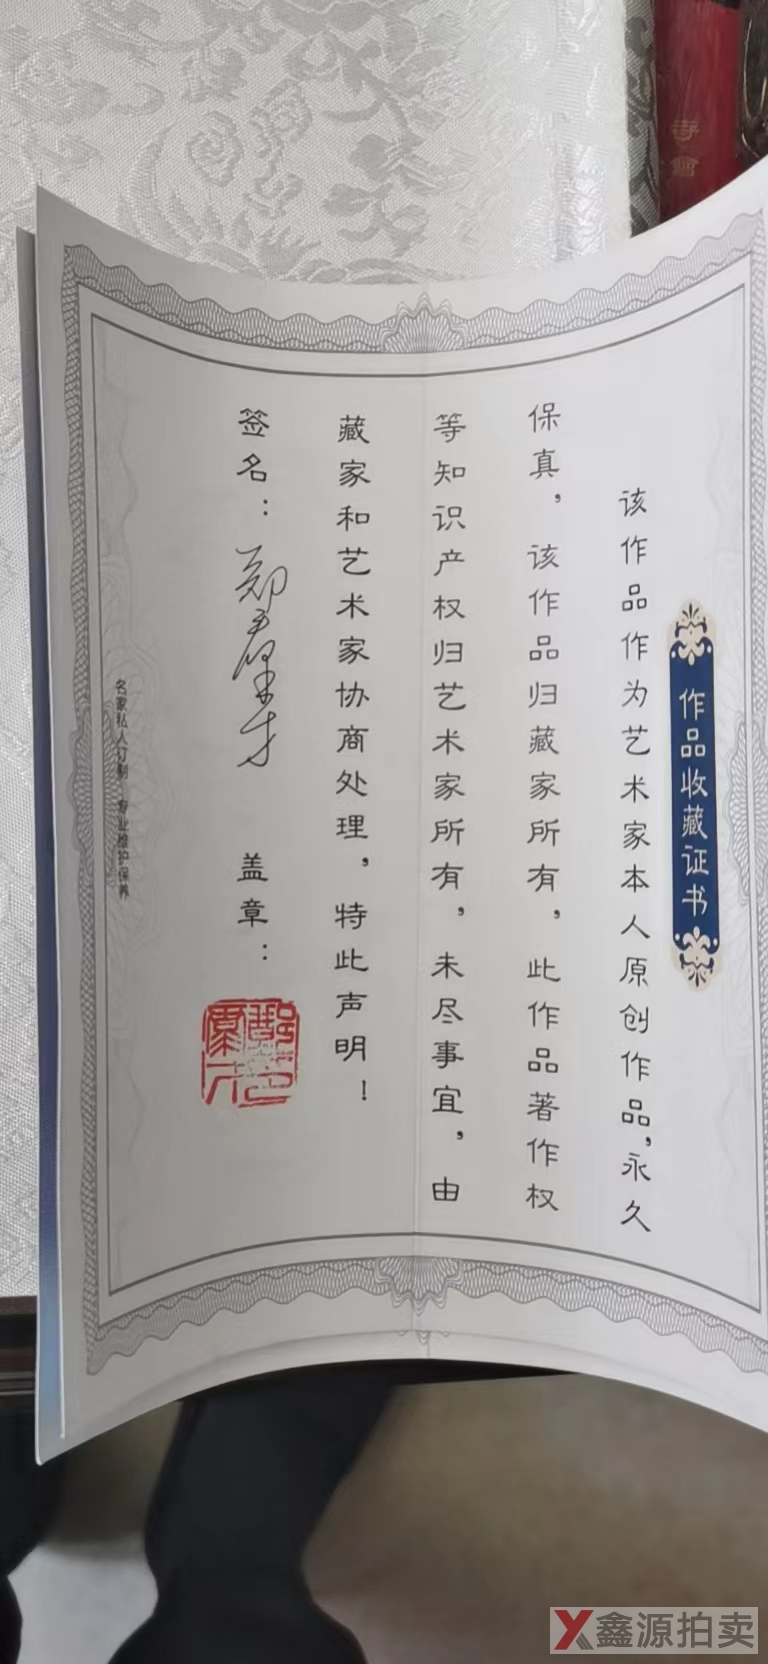 作品收藏证书
该作品作为艺术家本人原创作品，永久
保真，该作品归藏家所有，此作品著作权
等知识产权归艺术家所有，未尽事宜，由
藏家和艺术家协商处理，特此声明！
签名： 盖章：
名家私人订制 专业维护保养
鑫源拍卖